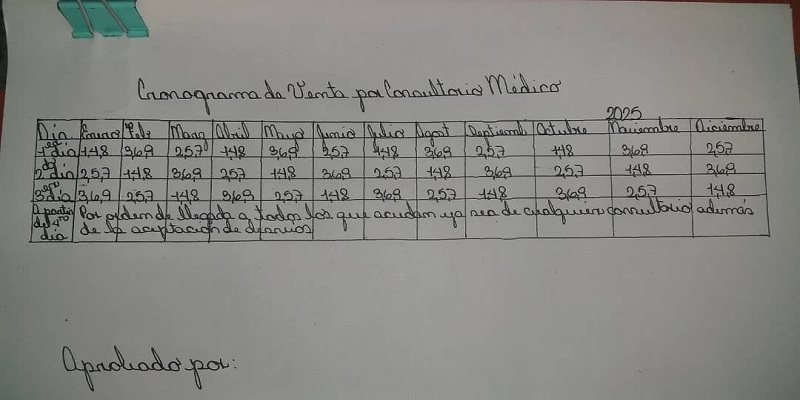 Cronograma de Venta por Consultorio Médico
2025
Día Enero Feb Marzo Abril Mayo Junio Julio Agost Septiemb Octubre Noviembre Diciembre
1er día 1,4,8 3,6,9 2,5,7 1,4,8 3,6,9 2,5,7 1,4,8 3,6,9 2,5,7 1,4,8 3,6,9 2,5,7
2do día 2,5,7 1,4,8 3,6,9 2,5,7 1,4,8 3,6,9 2,5,7 1,4,8 3,6,9 2,5,7 1,4,8 3,6,9
3ero día 3,6,9 2,5,7 1,4,8 3,6,9 2,5,7 1,4,8 3,6,9 2,5,7 1,4,8 3,6,9 2,5,7 1,4,8
A partir del 4to día Por orden de llegada a todos los que acudan ya sea de cualquier consultorio además
de la aceptación de
Aprobado por: